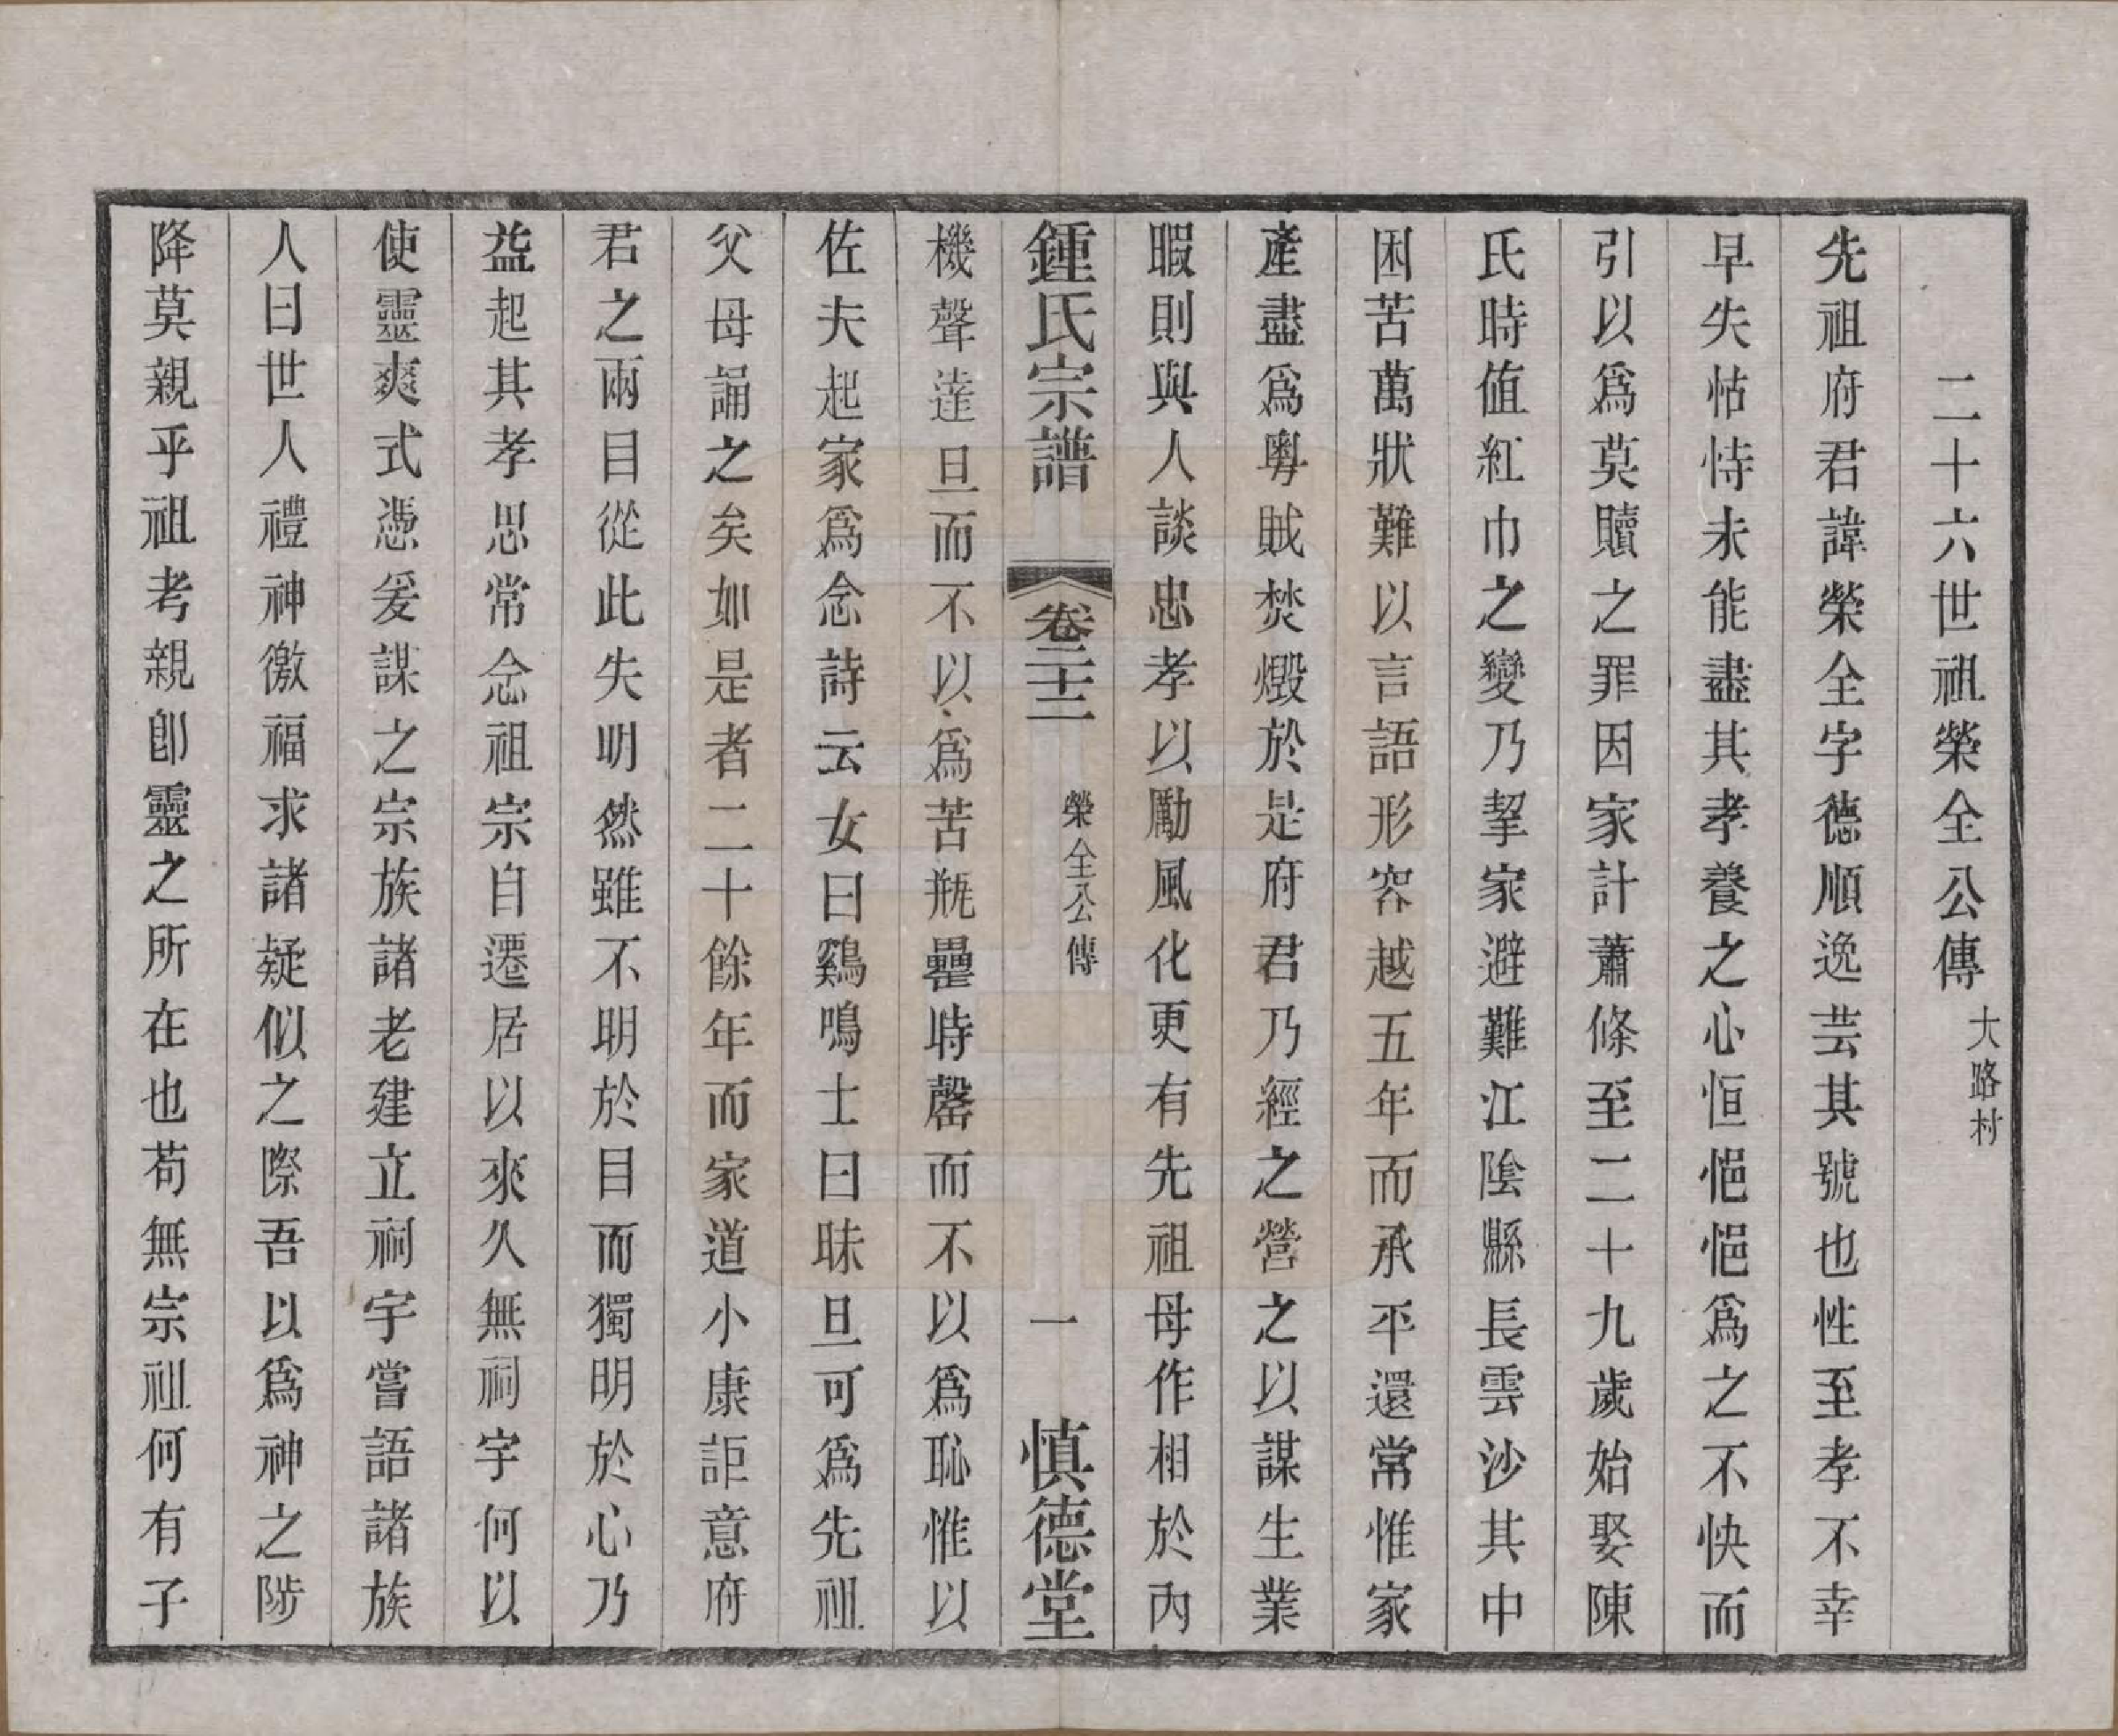 二十六世祖榮全公傳 大路村
先祖府君諱榮全字德順逸芸其號也性至孝不幸
早失怙恃未能盡其孝養之心恒悒悒爲之不快而
引以爲莫贖之罪因家計蕭條至二十九歲始娶陳
氏時值紅巾之變乃挈家避難江陰縣長雲沙其中
困苦萬狀難以言語形容越五年而承平還常惟家
產盡爲粵賊焚燬於是府君乃經之營之以謀生業
暇則與人談忠孝以勵風化更有先祖母作相於內
鍾氏宗譜 卷二十二 榮全公傳 一 慎德堂
機聲達旦而不以爲苦瓶罍時罄而不以爲恥惟以
佐夫起家爲念詩云女曰鷄鳴士曰昧旦可爲先祖
父母誦之矣如是者二十餘年而家道小康詎意府
君之兩目從此失明然雖不明於目而獨明於心乃
益起其孝思常念祖宗自遷居以來久無祠宇何以
使靈爽式憑爰謀之宗族諸老建立祠宇嘗語諸族
人曰世人禮神徼福求諸疑似之際吾以爲神之陟
降莫親乎祖考親卽靈之所在也苟無宗祖何有子